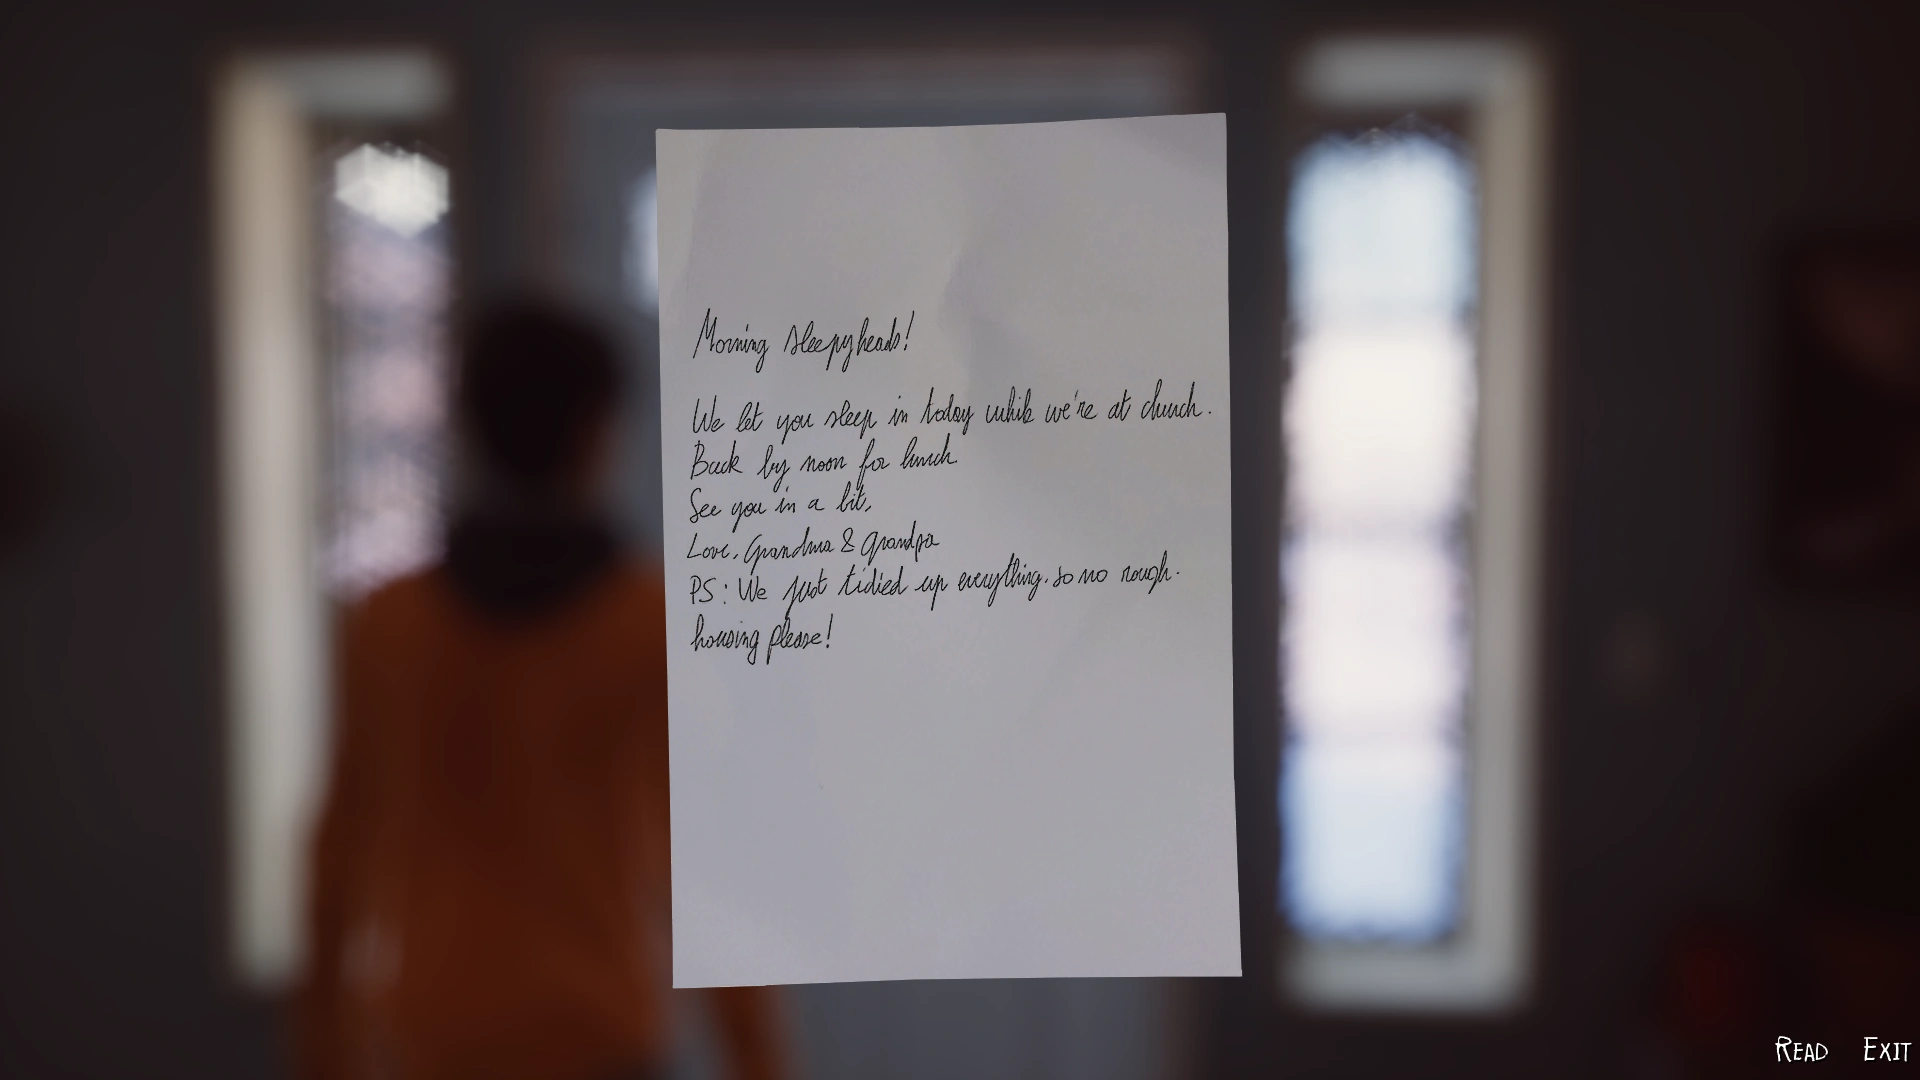 Morning sleepyheads!
We let you sleep in today while we're at church.
Back by noon for lunch
See you in a bit,
Love, Grandma & Grandpa
PS: We just tidied up everything, so no rough-
housing please!
READ EXIT